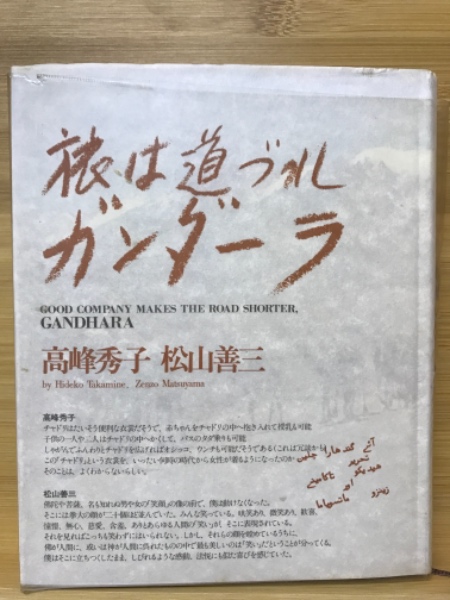 旅は道づれ
ガンダーラ
GOOD COMPANY MAKES THE ROAD SHORTER,
GANDHARA
高峰秀子 松山善三
by Hideko Takamine, Zenzo Matsuyama
高峰秀子
チャドリはだいそう便利な衣裳だそうで、赤ちゃんをチャドリの中へ抱き入れて授乳も可能
子供の一人や二人はチャドリの中へかくして、バスのタダ乗りも可能
しゃがんでふんわりとチャドリを広げればオシッコ、ウンチも可能だそうである
この「チャドリ」という衣裳を、いったい何時の時代から女性が着るようになったのか
そのことは、よくわからないらしい。
松山善三
佛陀や菩薩、名も知れぬ男や女の「笑顔」の像の前で、僕は動けなくなった。
そこには拳大の顔が三十個ほど並んでいた。みんな笑っている。
憧憬、無心、慈愛、含羞、ありとあらゆる人間の「笑い」が、そこに表現されている。
それを見ればこっちも笑わずにはいられない。しかし、それらの顔を眺めているうちに、
佛が人間に、或いは神が人間に与れたものの中で最も美しいのは「笑い」だということが分ってくる。
僕はそこに立ちつくしたまま、しびれるような感動、法悦にも似た喜びを感じていた。